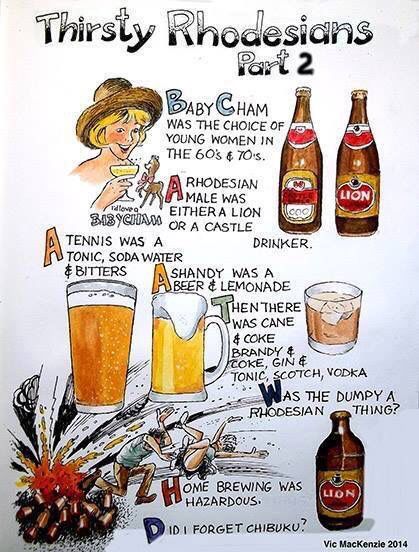 Thirsty Rhodesians
Part 2
BABY CHAM
WAS THE CHOICE OF
YOUNG WOMEN IN
THE 60's & 70's.
I'd love a
BABYCHAM
A RHODESIAN
MALE WAS
EITHER A LION
OR A CASTLE
DRINKER.
LION
A TENNIS WAS A
TONIC, SODA WATER
& BITTERS
A SHANDY WAS A
BEER & LEMONADE
THEN THERE
WAS CANE
& COKE
BRANDY &
COKE, GIN &
TONIC, SCOTCH, VODKA
WAS THE DUMPY A
RHODESIAN THING?
LION
HOME BREWING WAS
HAZARDOUS.
DID I FORGET CHIBUKU?
Vic MacKenzie 2014